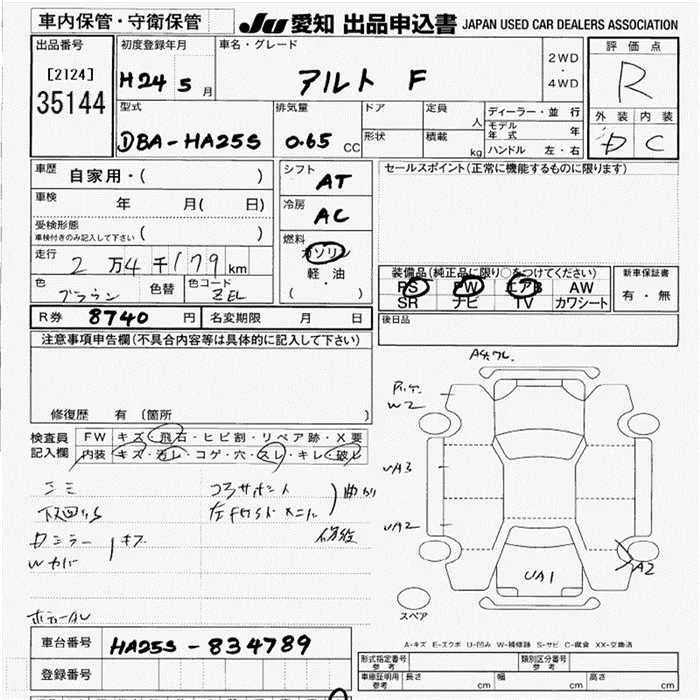 車内保管・守衛保管
JU 愛知 出品申込書 JAPAN USED CAR DEALERS ASSOCIATION
出品番号
[2124]
35144
初度登録年月
H24 5 月
車名・グレード
アルト F
2WD
・
4WD
評価点
R
外装 内装
D C
型式
DBA-HA25S
排気量
0.65 CC
ドア
形状
定員 人
積載 kg
ディーラー・並行
モデル年式 年
ハンドル 左・右
車歴
自家用・( )
車検 年 月( 日)
受検形態
車検付きのみ記入して下さい ( )
走行
2 万 4 千 179 km
色
ブラウン
色替
色コード
ZEL
シフト
AT
冷房
AC
燃料
ガソリン
・
軽油
( )
セールスポイント(正常に機能するものに限ります)
装備品(純正品に限り○をつけてください)
PS PW エアB AW
SR ナビ TV カワシート
新車保証書
有・無
R券 8740 円 名変期限 月 日
後日品
注意事項申告欄(不具合内容等は具体的に記入して下さい)
修復歴 有 (箇所 )
検査員記入欄
FW キズ・飛石・ヒビ割・リペア跡・X要
内装 キズ・汚レ・コゲ・穴・スレ・キレ・破レ
コアサポート
曲がり
修正
ミラー
キズ
Wカバー
W2
UA3
UA2
UA1
A2
スペア
A-キズ E-エクボ U-凹み W-補修跡 S-サビ C-腐食 XX-交換済
車台番号 HA25S-834789
登録番号
形式指定番号 参考
類別区分番号 参考
車庫証明用 参考 長さ cm 幅 cm 高さ cm